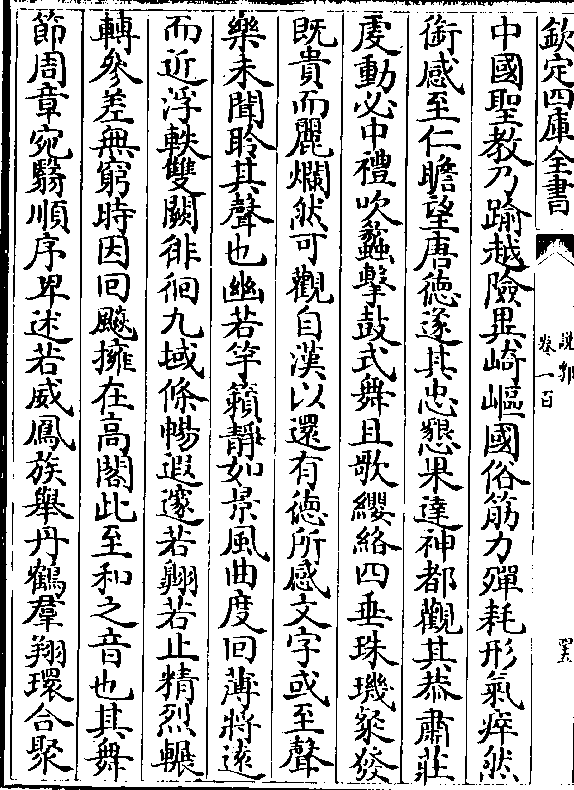 欽定四庫全書
說郛
卷一百
中國聖教乃踰越險畏崎嶇國俗筋力殫耗形氣瘁然
銜感至仁瞻望唐德遂其忠懇果達神都觀其恭肅莊
虔動必中禮吹蠡擊鼓式舞且歌纓絡四垂珠璣粲發
既貴而麗爛然可觀自漢以還有德所感文字或至聲
樂未聞聆其聲也幽若竽籟靜如景風曲度回薄將遠
而近浮軼雙闕徘徊九域條暢遐邃若翺若止精烈輾
轉參差無窮時因回飈擁在高閣此至和之音也其舞
節周章宛翳順序卑述若威鳳族舉丹鶴羣翔環合聚